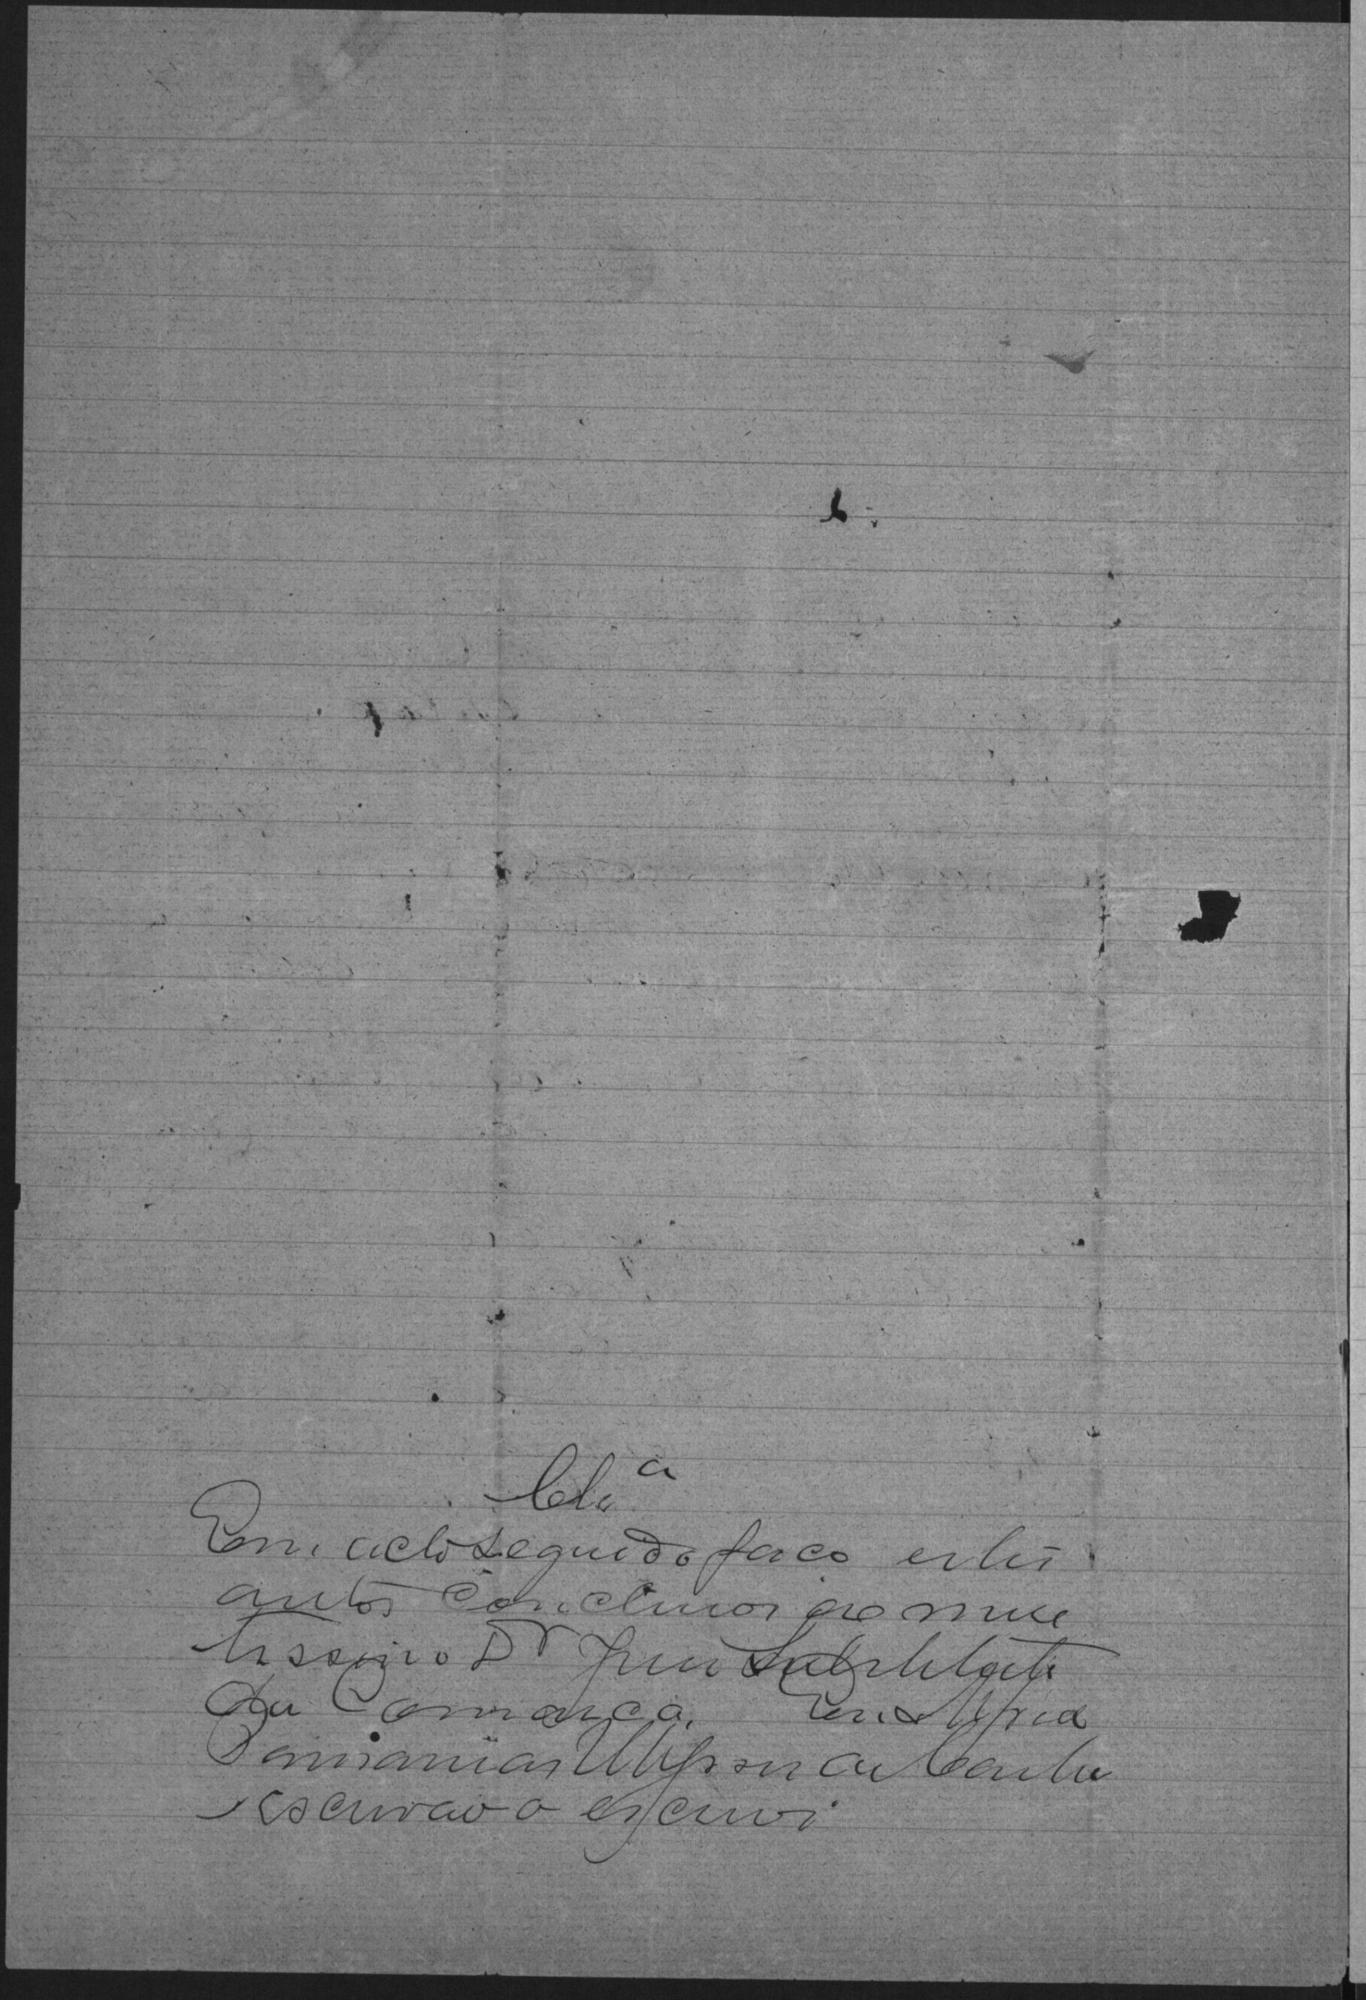 Cls.ª
Em acto seguido faço estes
autos conclusos ao meri
tissimo Dr Juis Substituto
da Comarca. Eu
Ulysses de
escrivão o escrevi